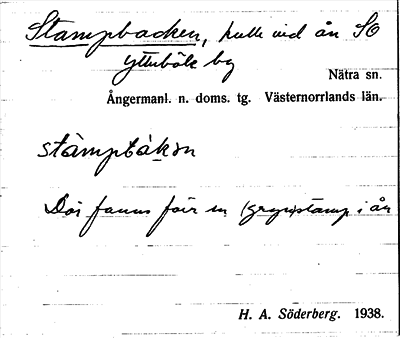 Stampbacken, kulle vid ån SO
Ytterböle by
Nätra sn.
Ångermanl. n. doms. tg. Västernorrlands län.
stàmpbákɘn
Där fanns förr en (gryn)stamp i ån
H. A. Söderberg. 1938.